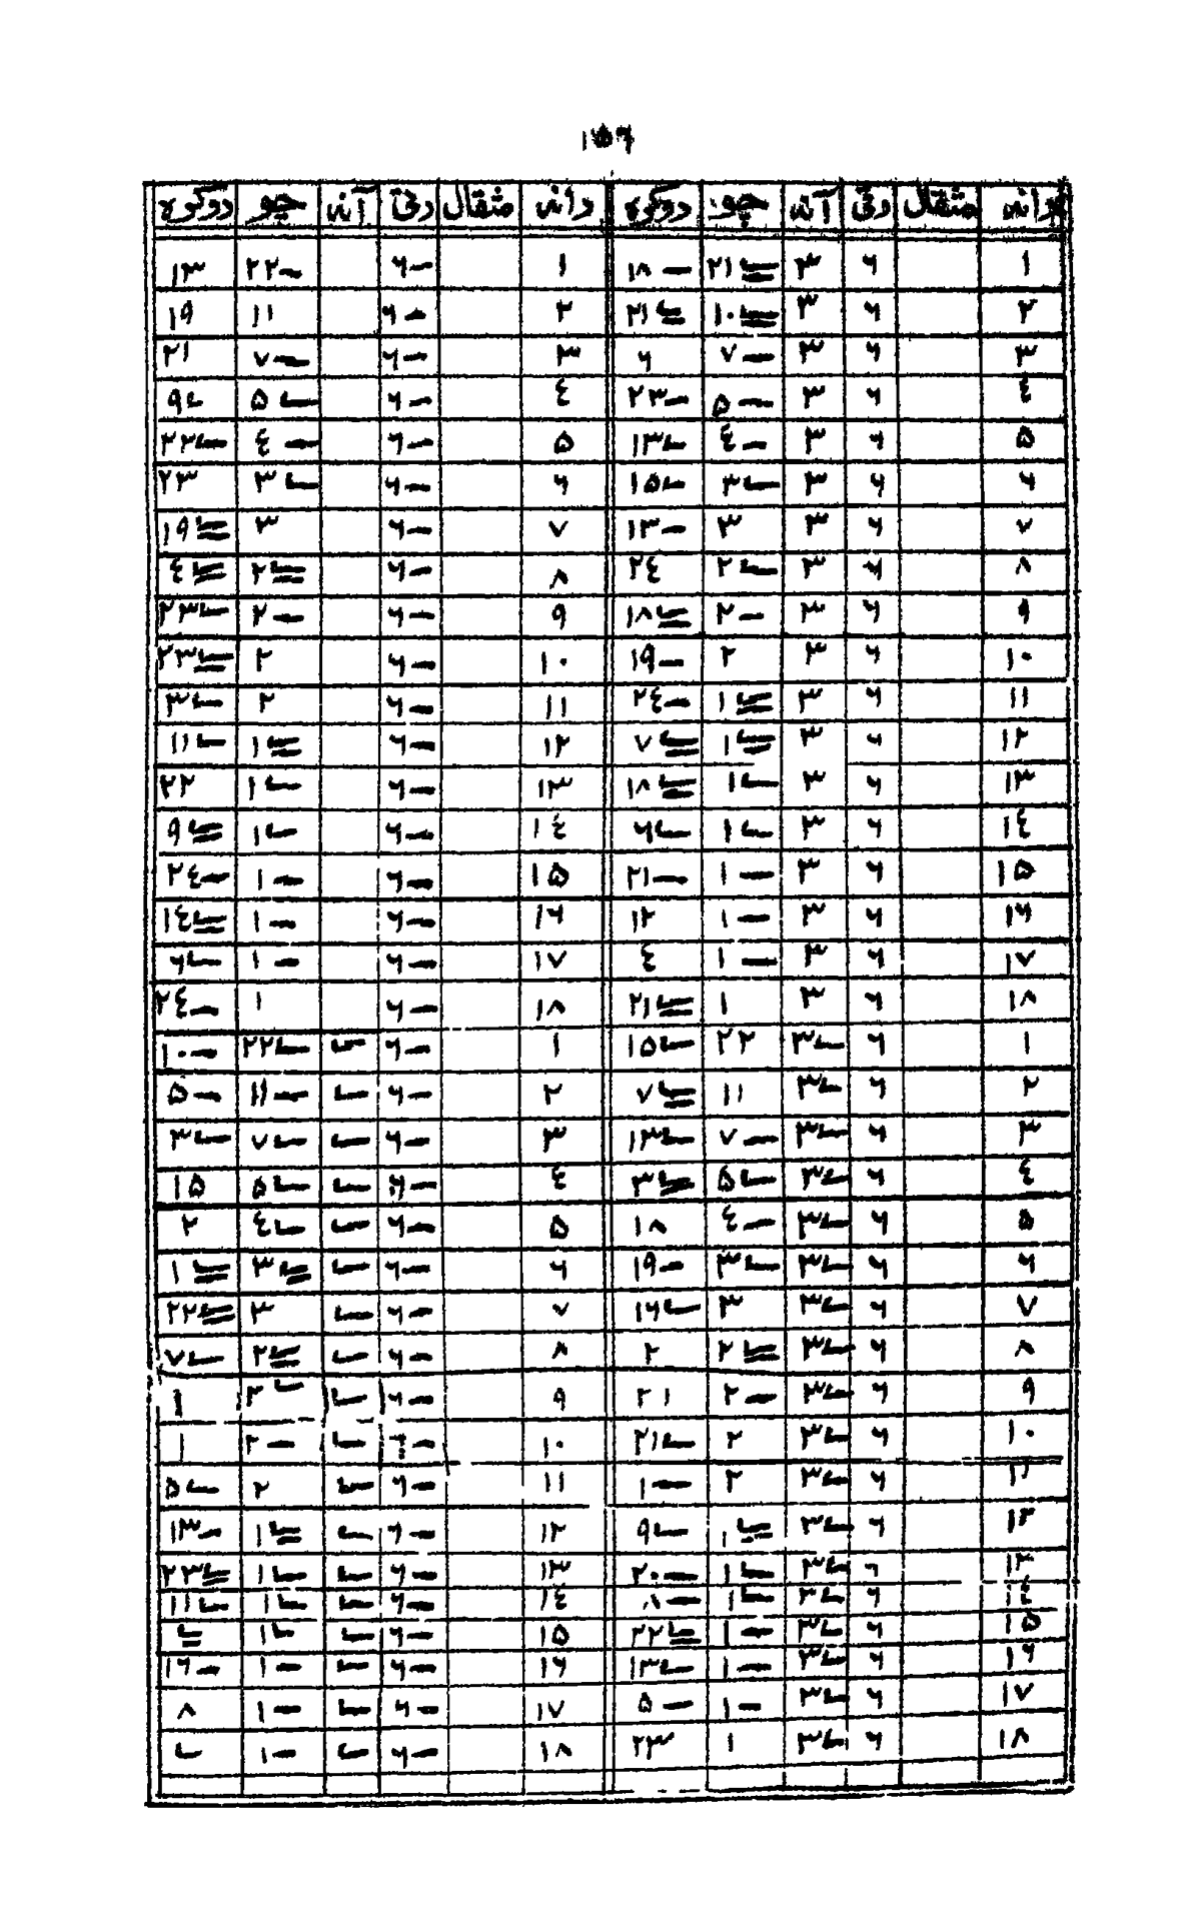 دانه مثقال رتی آنه چو دوکره دانه مثقال رتی آنه چو دوکره
۱ ۶ ۳ ۲۱ ۱۸ ۱ ۶ ۲۲ ۱۳
۲ ۶ ۳ ۱۰ ۲۱ ۲ ۶ ۱۱ ۱۹
۳ ۶ ۳ ۷ ۶ ۳ ۶ ۷ ۲۱
٤ ۶ ۳ ۵ ۲۳ ٤ ۶ ۵ ۹
۵ ۶ ۳ ٤ ۱۳ ۵ ۶ ٤ ۲۲
۶ ۶ ۳ ۳ ۱۵ ۶ ۶ ۳ ۲۳
۷ ۶ ۳ ۳ ۱۳ ۷ ۶ ۳ ۱۹
۸ ۶ ۳ ۲ ۲٤ ۸ ۶ ۲ ٤
۹ ۶ ۳ ۲ ۱۸ ۹ ۶ ۲ ۲۳
۱۰ ۶ ۳ ۲ ۱۹ ۱۰ ۶ ۲ ۲۳
۱۱ ۶ ۳ ۱ ۲٤ ۱۱ ۶ ۲ ۳
۱۲ ۶ ۳ ۱ ۷ ۱۲ ۶ ۱ ۱۱
۱۳ ۶ ۳ ۱ ۱۸ ۱۳ ۶ ۱ ۲۲
۱٤ ۶ ۳ ۱ ۶ ۱٤ ۶ ۱ ۹
۱۵ ۶ ۳ ۱ ۲۱ ۱۵ ۶ ۱ ۲٤
۱۶ ۶ ۳ ۱ ۱۲ ۱۶ ۶ ۱ ۱٤
۱۷ ۶ ۳ ۱ ٤ ۱۷ ۶ ۱ ۶
۱۸ ۶ ۳ ۱ ۲۱ ۱۸ ۶ ۱ ۲٤
۱ ۶ ۳ ۲۲ ۱۵ ۱ ۶ ۲۲ ۱۰
۲ ۶ ۳ ۱۱ ۷ ۲ ۶ ۱۱ ۵
۳ ۶ ۳ ۷ ۱۳ ۳ ۶ ۷ ۳
٤ ۶ ۳ ۵ ۳ ٤ ۶ ۵ ۱۵
۵ ۶ ۳ ٤ ۱۸ ۵ ۶ ٤ ۲
۶ ۶ ۳ ۳ ۱۹ ۶ ۶ ۳ ۱
۷ ۶ ۳ ۳ ۱۶ ۷ ۶ ۳ ۲۲
۸ ۶ ۳ ۲ ۲ ۸ ۶ ۲ ۷
۹ ۶ ۳ ۲ ۲۱ ۹ ۶ ۲ ۱
۱۰ ۶ ۳ ۲ ۲۱ ۱۰ ۶ ۲ ۱
۱۱ ۶ ۳ ۲ ۱ ۱۱ ۶ ۲ ۵
۱۲ ۶ ۳ ۱ ۹ ۱۲ ۶ ۱ ۱۳
۱۳ ۶ ۳ ۱ ۲۰ ۱۳ ۶ ۱ ۲۳
۱٤ ۶ ۳ ۱ ۸ ۱٤ ۶ ۱ ۱۱
۱۵ ۶ ۳ ۱ ۲۲ ۱۵ ۶ ۱
۱۶ ۶ ۳ ۱ ۱۳ ۱۶ ۶ ۱ ۱۶
۱۷ ۶ ۳ ۱ ۵ ۱۷ ۶ ۱ ۸
۱۸ ۶ ۳ ۱ ۲۳ ۱۸ ۶ ۱